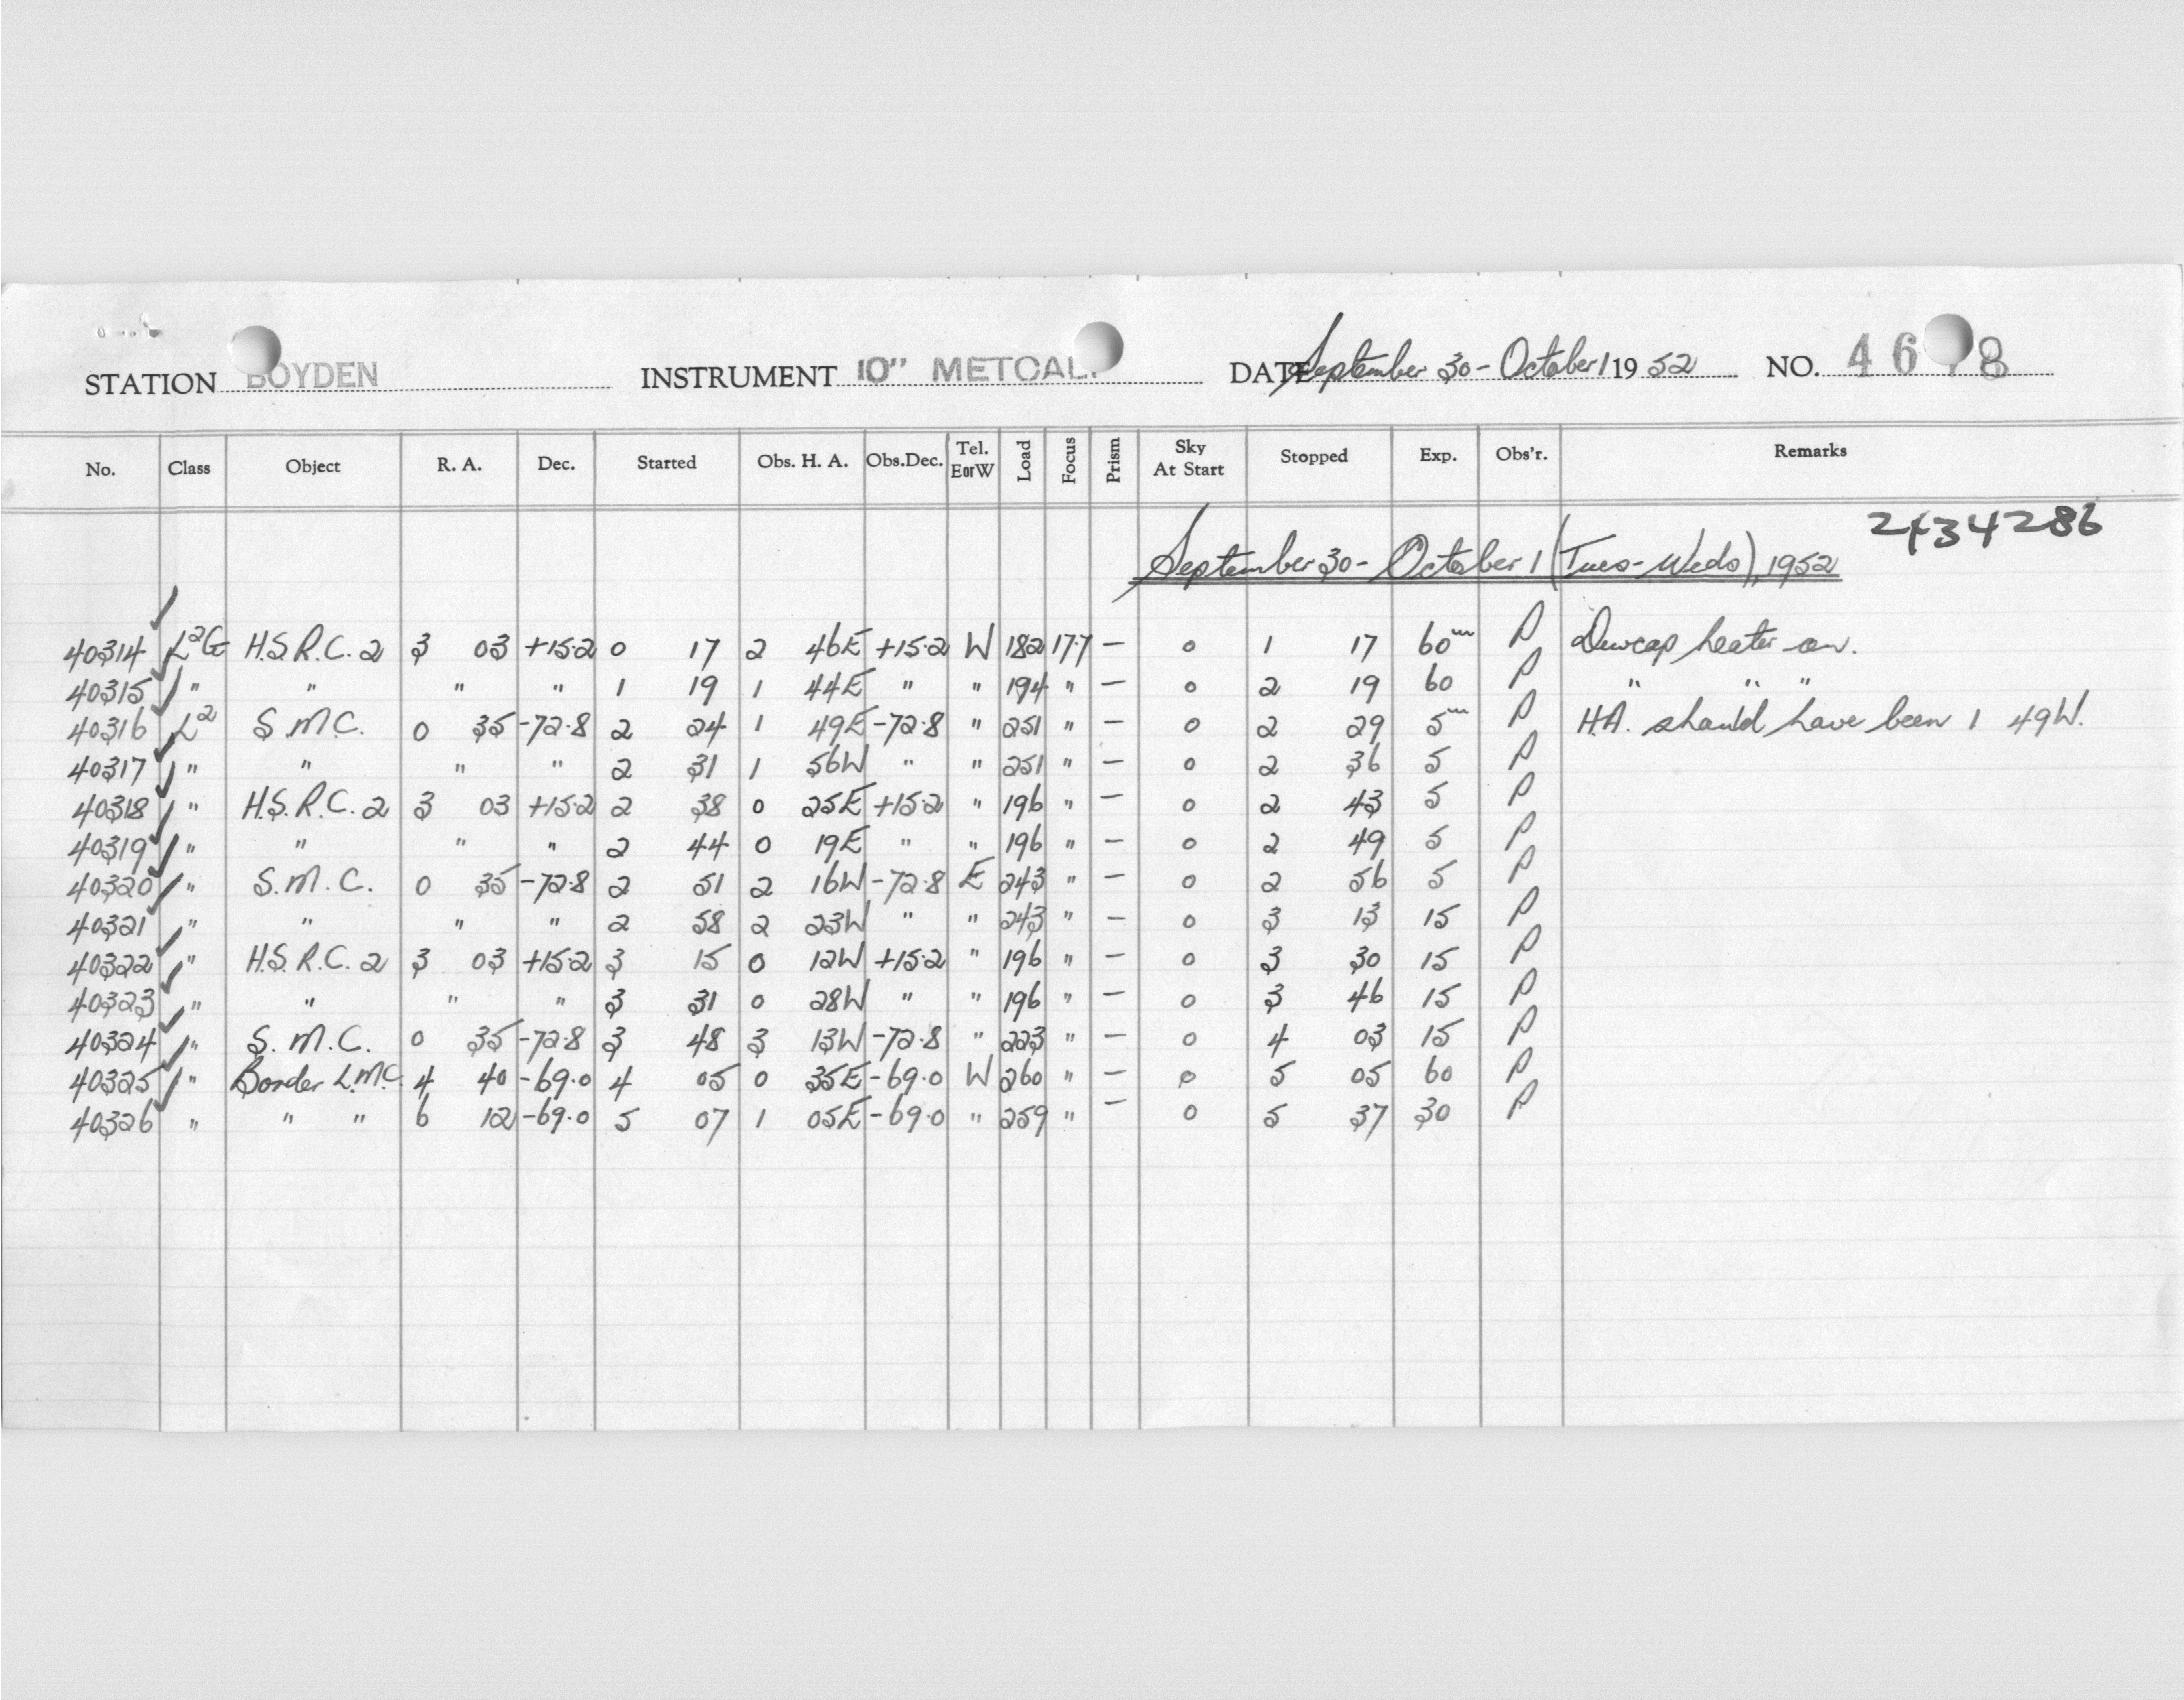 STATION BOYDEN INSTRUMENT 10" METCAL. DATE September 30 - October 1 1952 NO. 46 8
No. Class Object R. A. Dec. Started Obs. H. A. Obs.Dec. Tel. EorW Load Focus Prism Sky At Start Stopped Exp. Obs'r. Remarks
2434286
September 30 - October 1 (Tues-Weds), 1952
40314 L²G H.S.R.C. 2 3 03 +15.2 0 17 2 46E +15.2 W 182 17.7 — 0 1 17 60ᵐ P Dewcap heater on.
40315 " " " " 1 19 1 44E " " 194 " — 0 2 19 60 P " " "
40316 L² S.M.C. 0 35 -72.8 2 24 1 49E -72.8 " 251 " — 0 2 29 5ᵐ P H.A. should have been 1 49W.
40317 " " " " 2 31 1 56W " " 251 " — 0 2 36 5 P
40318 " H.S.R.C. 2 3 03 +15.2 2 38 0 25E +15.2 " 196 " — 0 2 43 5 P
40319 " " " " 2 44 0 19E " " 196 " — 0 2 49 5 P
40320 " S.M.C. 0 35 -72.8 2 51 2 16W -72.8 E 243 " — 0 2 56 5 P
40321 " " " " 2 58 2 23W " " 243 " — 0 3 13 15 P
40322 " H.S.R.C. 2 3 03 +15.2 3 15 0 12W +15.2 " 196 " — 0 3 30 15 P
40323 " " " " 3 31 0 28W " " 196 " — 0 3 46 15 P
40324 " S.M.C. 0 35 -72.8 3 48 3 13W -72.8 " 223 " — 0 4 03 15 P
40325 " Border L.M.C. 4 40 -69.0 4 05 0 35E -69.0 W 260 " — 0 5 05 60 P
40326 " " " 6 12 -69.0 5 07 1 05E -69.0 " 259 " — 0 5 37 30 P